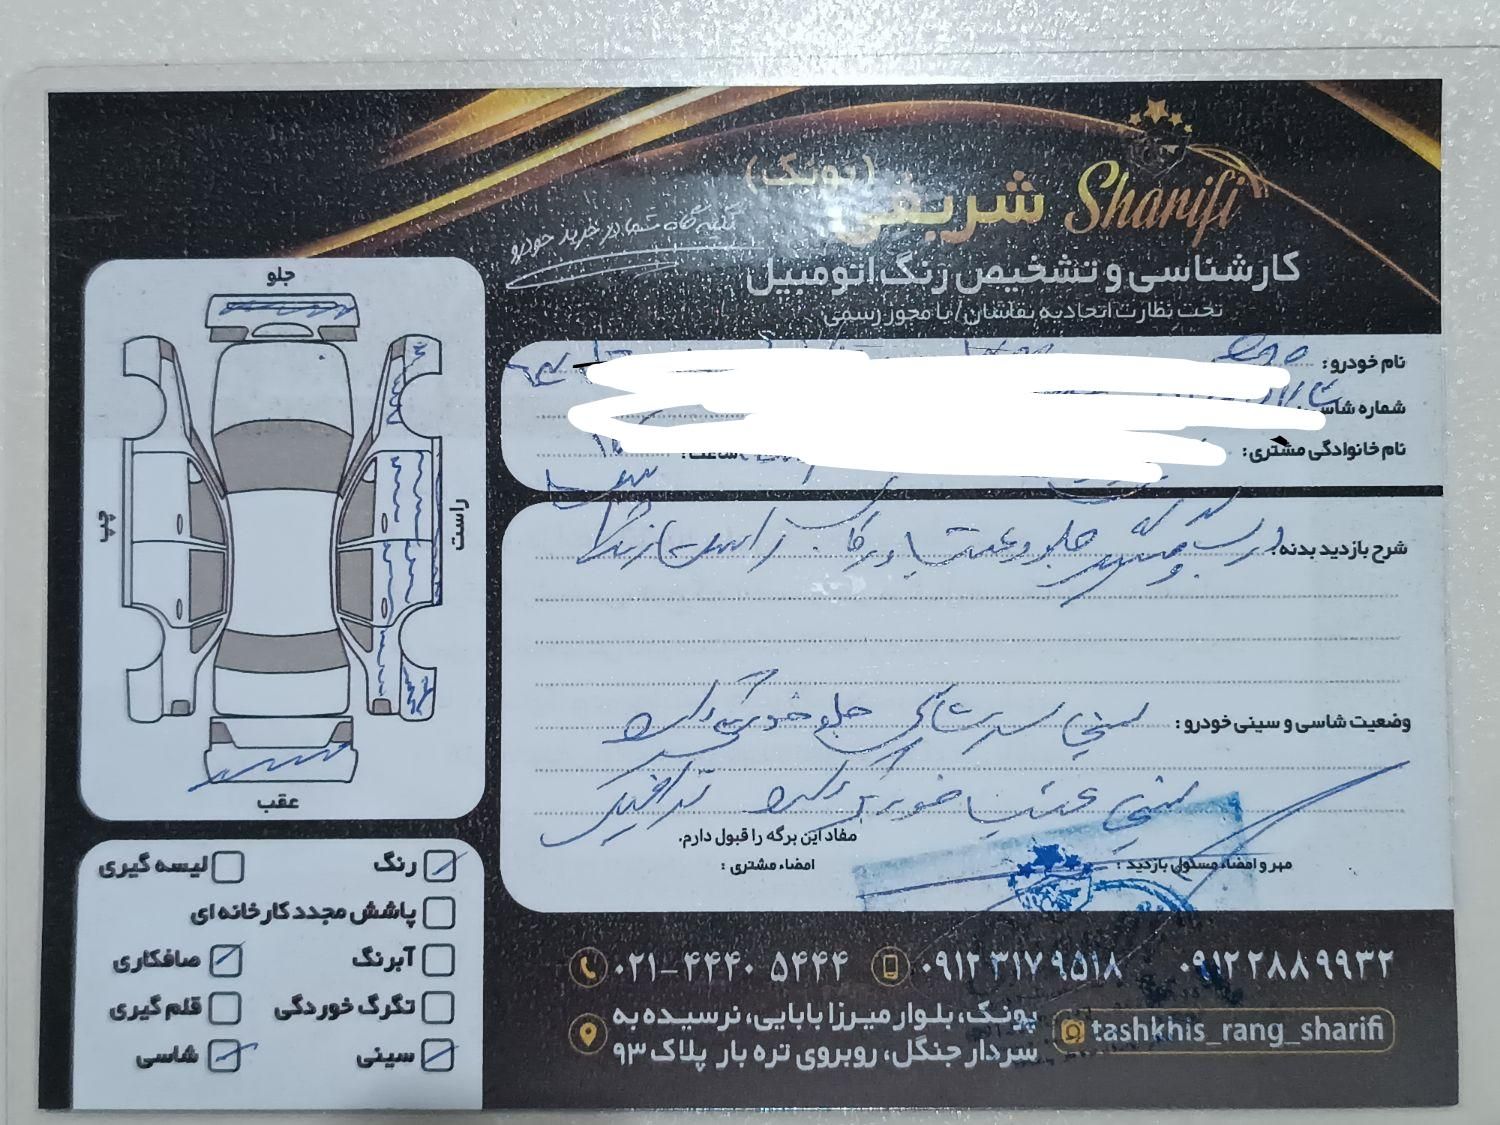 Sharifi شریفی (پونک)
تکیه گاه شما در خرید خودرو
کارشناسی و تشخیص رنگ اتومبیل
تحت نظارت اتحادیه نقاشان / با مجوز رسمی
نام خودرو :
شماره شاسی
نام خانوادگی مشتری: ساعت:
شرح بازدید بدنه: جلو و عقب و رکاب راست
وضعیت شاسی و سینی خودرو : سینی سر شاسی جلو خوردگی دارد
سینی عقب خوردگی دارد
مفاد این برگه را قبول دارم.
مهر و امضاء مسئول بازدید : امضاء مشتری :
جلو
چپ
راست
عقب
رنگ لیسه گیری
پاشش مجدد کارخانه ای
آبرنگ صافکاری
تگرگ خوردگی قلم گیری
سینی شاسی
۰۹۱۲ ۲۸۸ ۹۹۳۲ ۰۹۱۲ ۳۱۷ ۹۵۱۸ ۰۲۱-۴۴۴۰ ۵۴۴۴
tashkhis_rang_sharifi
پونک، بلوار میرزا بابایی، نرسیده به
سردار جنگل، روبروی تره بار پلاک ۹۳